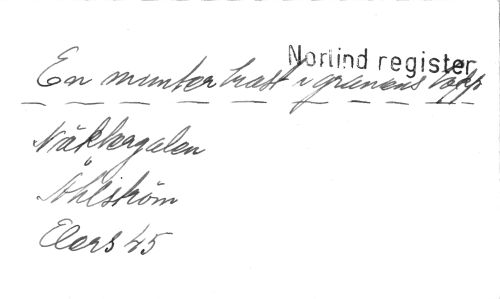 Norlind register
En munter trast i granens topp
Näktergalen
Åhlström
Elers 45